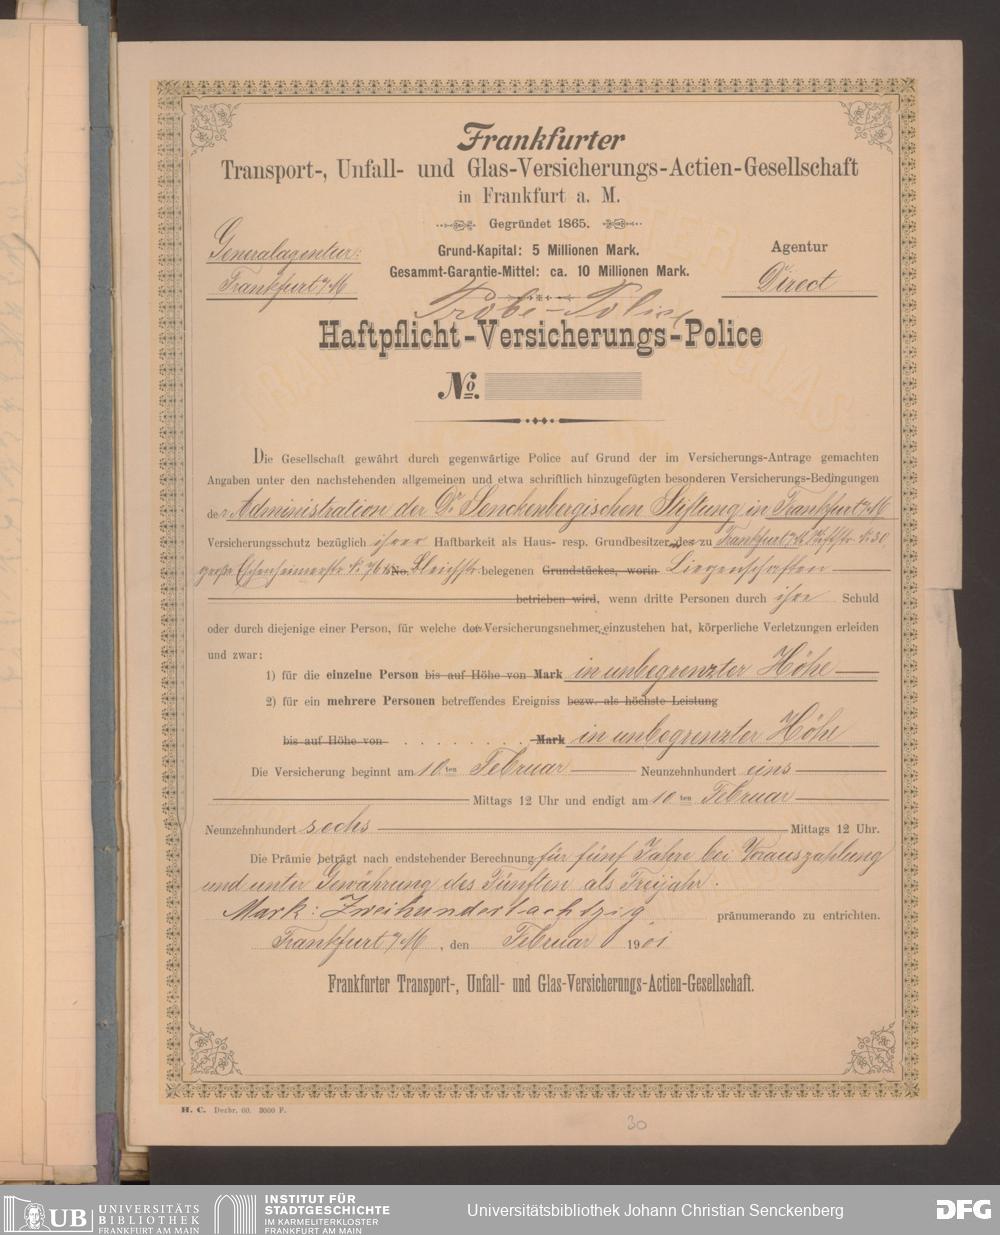 Frankfurter
Transport-, Unfall- und Glas-Versicherungs-Actien-Gesellschaft
in Frankfurt a. M.
Gegründet 1865.
Generalagentur:
Frankfurt a/M
Grund-Kapital: 5 Millionen Mark.
Gesammt-Garantie-Mittel: ca. 10 Millionen Mark.
Agentur
Direct
Probe-Police
Haftpflicht-Versicherungs-Police
No.
Die Gesellschaft gewährt durch gegenwärtige Police auf Grund der im Versicherungs-Antrage gemachten
Angaben unter den nachstehenden allgemeinen und etwa schriftlich hinzugefügten besonderen Versicherungs-Bedingungen
der Administration der Dr. Senckenbergischen Stiftung in Frankfurt a/M
Versicherungsschutz bezüglich ihrer Haftbarkeit als Haus- resp. Grundbesitzer des zu Frankfurt a/M Stiftstr. No 30,
große Eschenheimerstr. No 76 No. Bleichstr. belegenen Grundstückes, worin Liegenschaften
betrieben wird, wenn dritte Personen durch ihre Schuld
oder durch diejenige einer Person, für welche der Versicherungsnehmer einzustehen hat, körperliche Verletzungen erleiden
und zwar:
1) für die einzelne Person bis auf Höhe von Mark in unbegrenzter Höhe
2) für ein mehrere Personen betreffendes Ereigniss bezw. als höchste Leistung
bis auf Höhe von . . . . . . . . Mark in unbegrenzter Höhe
Die Versicherung beginnt am 10ten Februar Neunzehnhundert eins
Mittags 12 Uhr und endigt am 10ten Februar
Neunzehnhundert sechs Mittags 12 Uhr.
Die Prämie beträgt nach endstehender Berechnung für fünf Jahre bei Vorauszahlung
und unter Gewährung des Fünften als Freijahr.
Mark: Zweihundertachtzig pränumerando zu entrichten.
Frankfurt a/M, den Februar 1901
Frankfurter Transport-, Unfall- und Glas-Versicherungs-Actien-Gesellschaft.
H. C. Dezbr. 00. 3000 P.
30
UB UNIVERSITÄTS
BIBLIOTHEK
FRANKFURT AM MAIN
INSTITUT FÜR
STADTGESCHICHTE
IM KARMELITERKLOSTER
FRANKFURT AM MAIN
Universitätsbibliothek Johann Christian Senckenberg
DFG